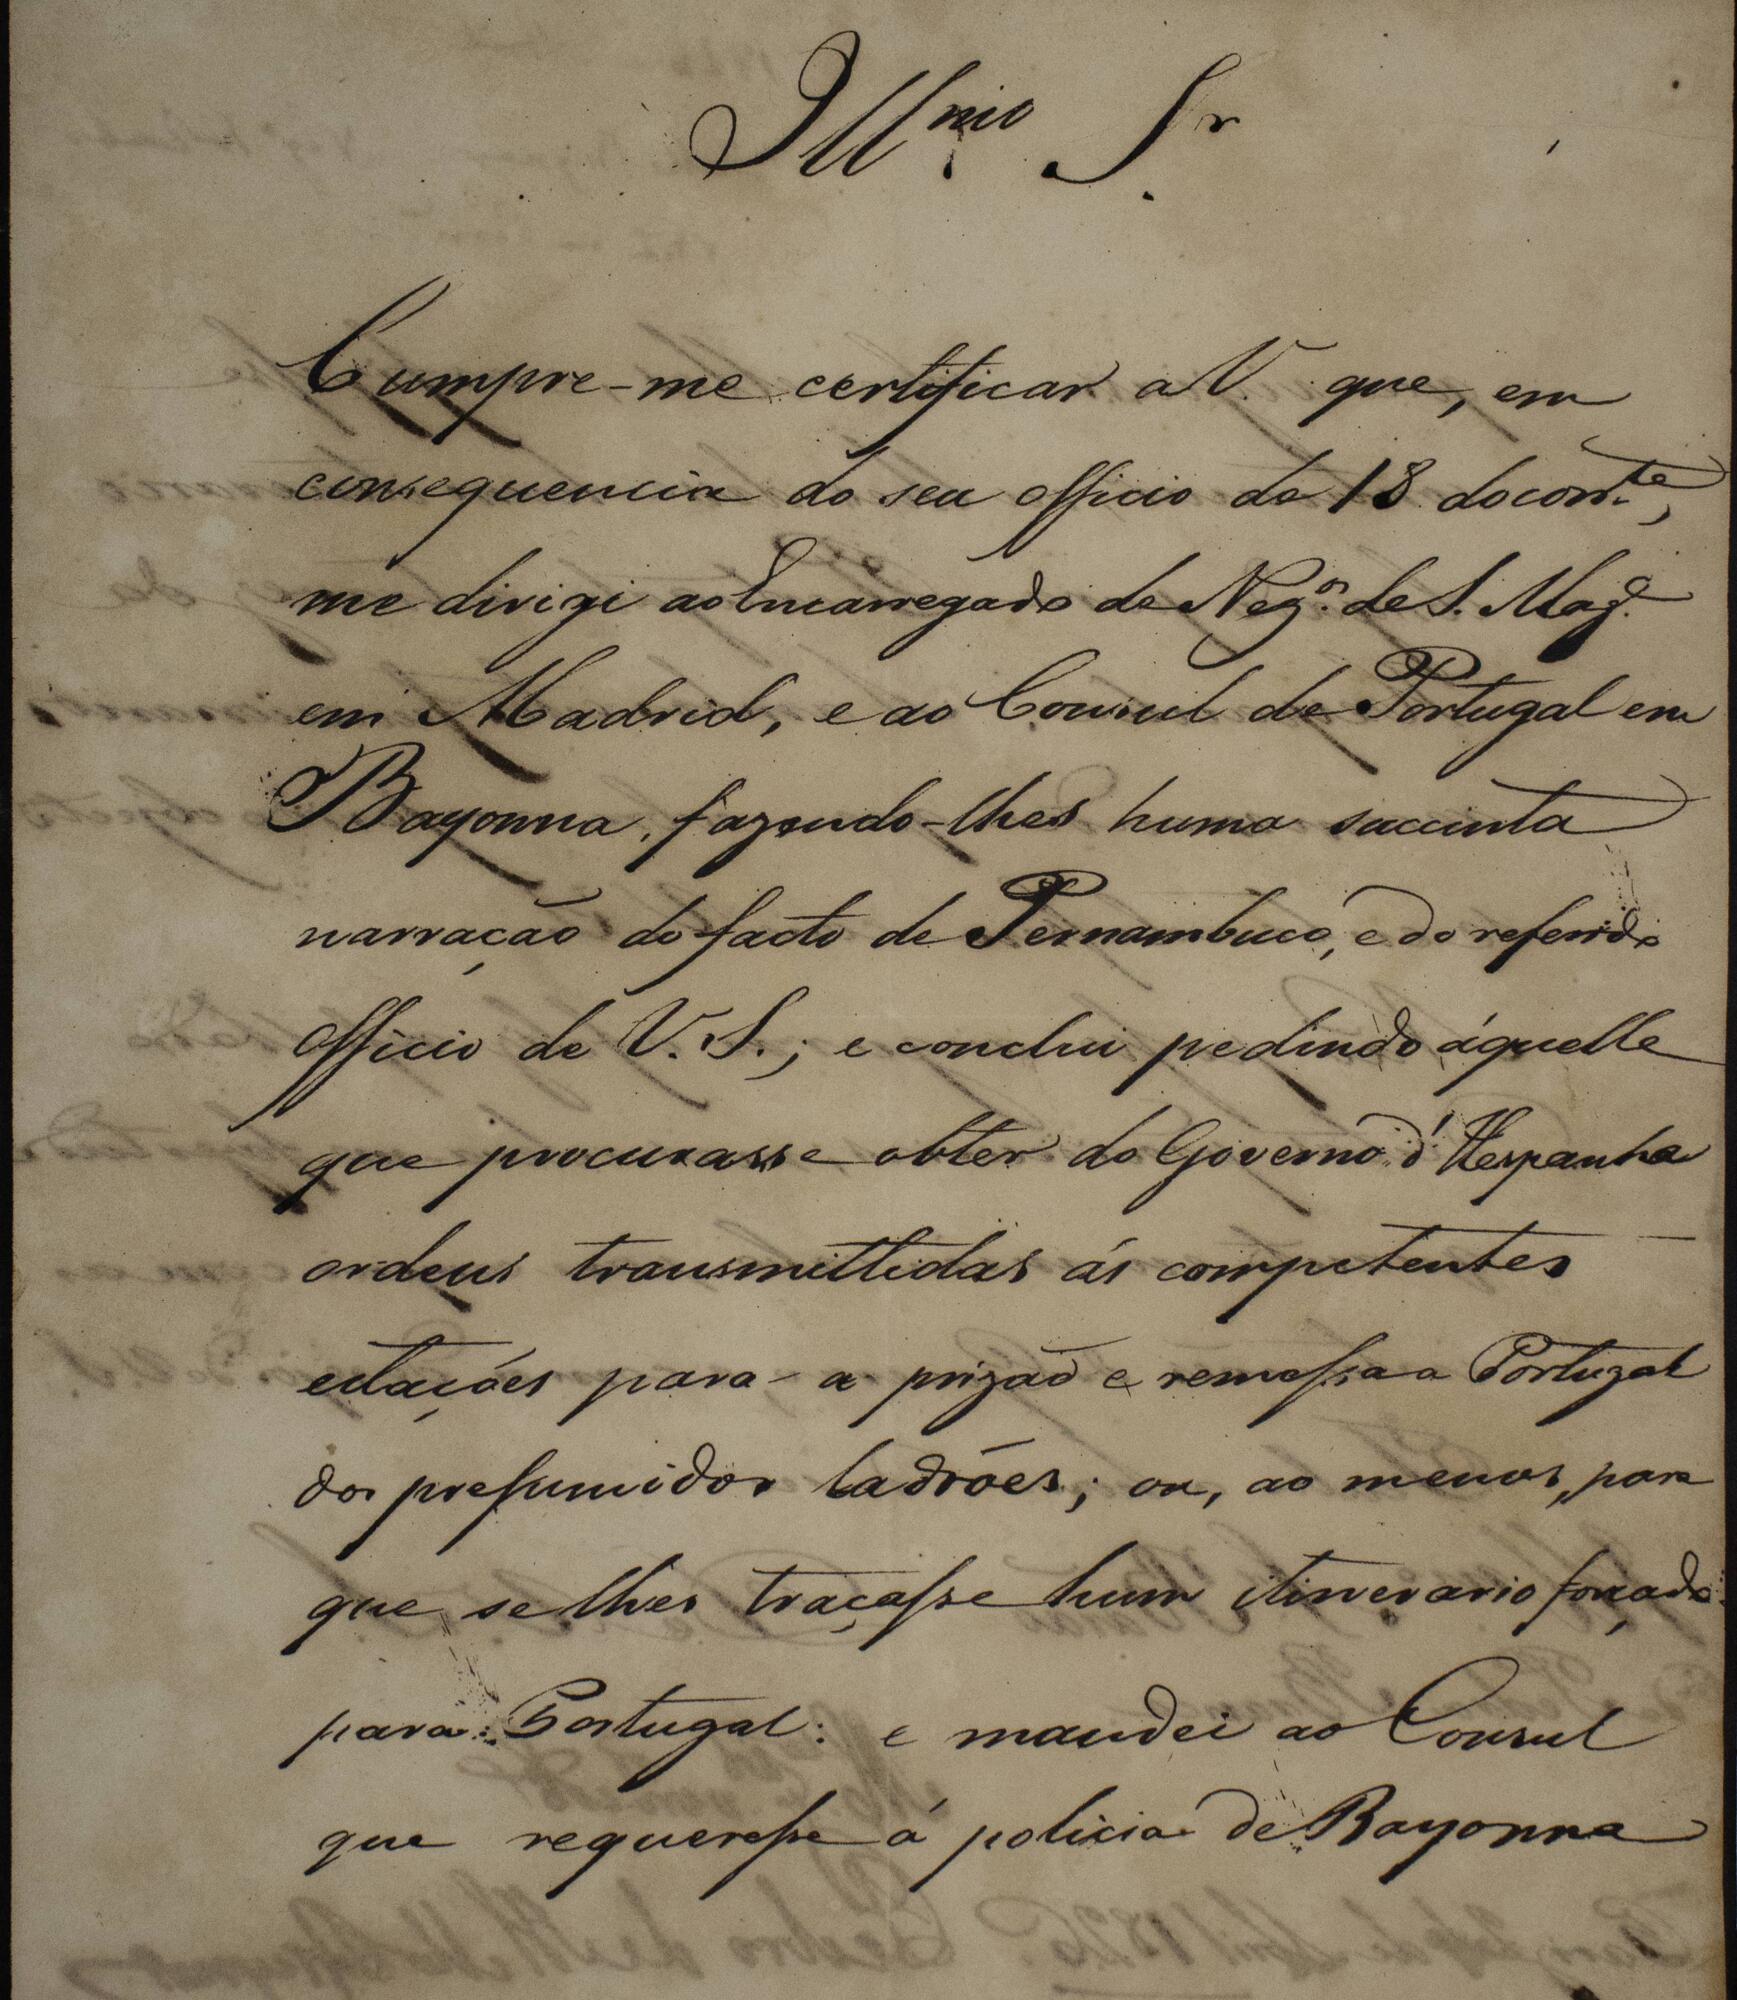 Illmo. Sr.
Cumpre-me certificar a V. que, em
consequencia do seu officio de 18 do corrte,
me dirigi ao Encarregado de Negos. de S. Mage.
em Madrid, e ao Consul de Portugal em
Bayonna, fazendo-lhes huma succinta
narração do facto de Pernambuco, e do referido
officio de V. S.; e conclui pedindo áquelle
que procurasse obter do Governo d'Hespanha
ordens transmittidas ás competentes
estações para a prizão e remessa a Portugal
dos presumidos ladrões; ou, ao menos, para
que se lhes traçasse hum itinerario forçado
para Portugal: e mandei ao Consul
que requeresse á policia de Bayonna